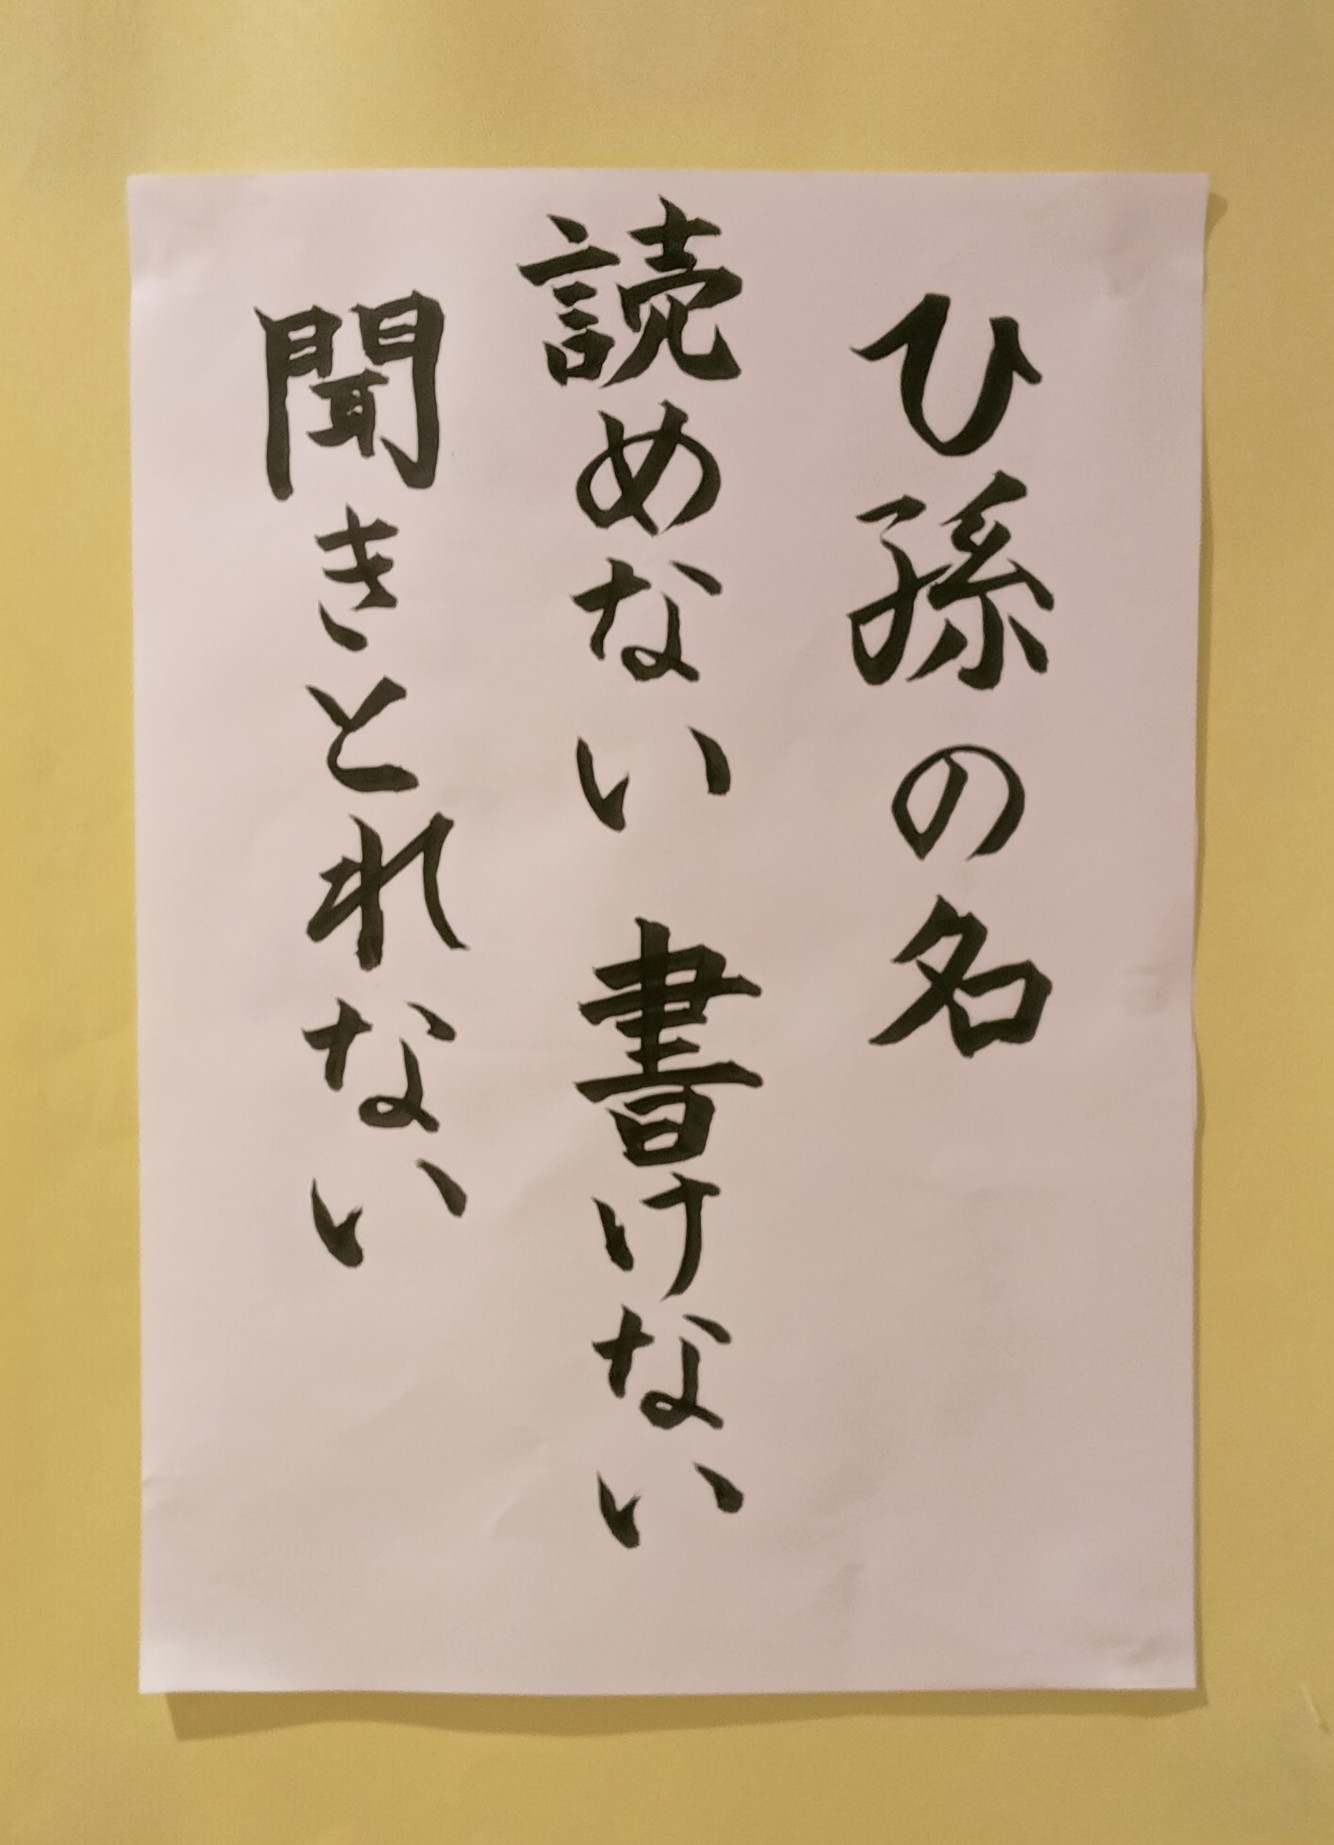 ひ孫の名
読めない 書けない
聞きとれない